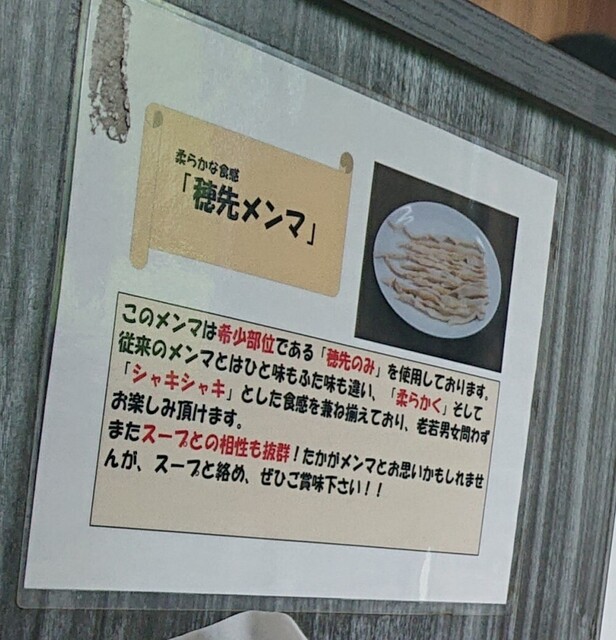 柔らかな食感
「穂先メンマ」
このメンマは希少部位である「穂先のみ」を使用しております。
従来のメンマとはひと味もふた味も違い、「柔らかく」そして
「シャキシャキ」とした食感を兼ね揃えており、老若男女問わず
お楽しみ頂けます。
またスープとの相性も抜群！たかがメンマとお思いかもしれませ
んが、スープと絡め、ぜひご賞味下さい！！